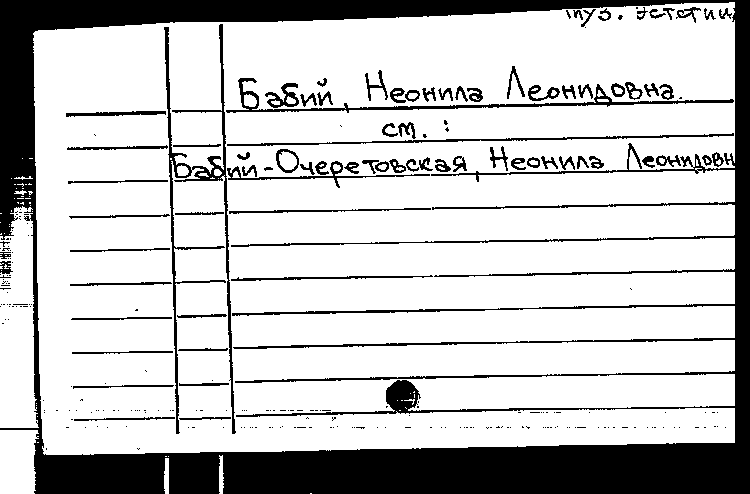 муз. эстетик
Бабий, Неонила Леонидовна.
см. :
Бабий-Очеретовская, Неонила Леонидовн